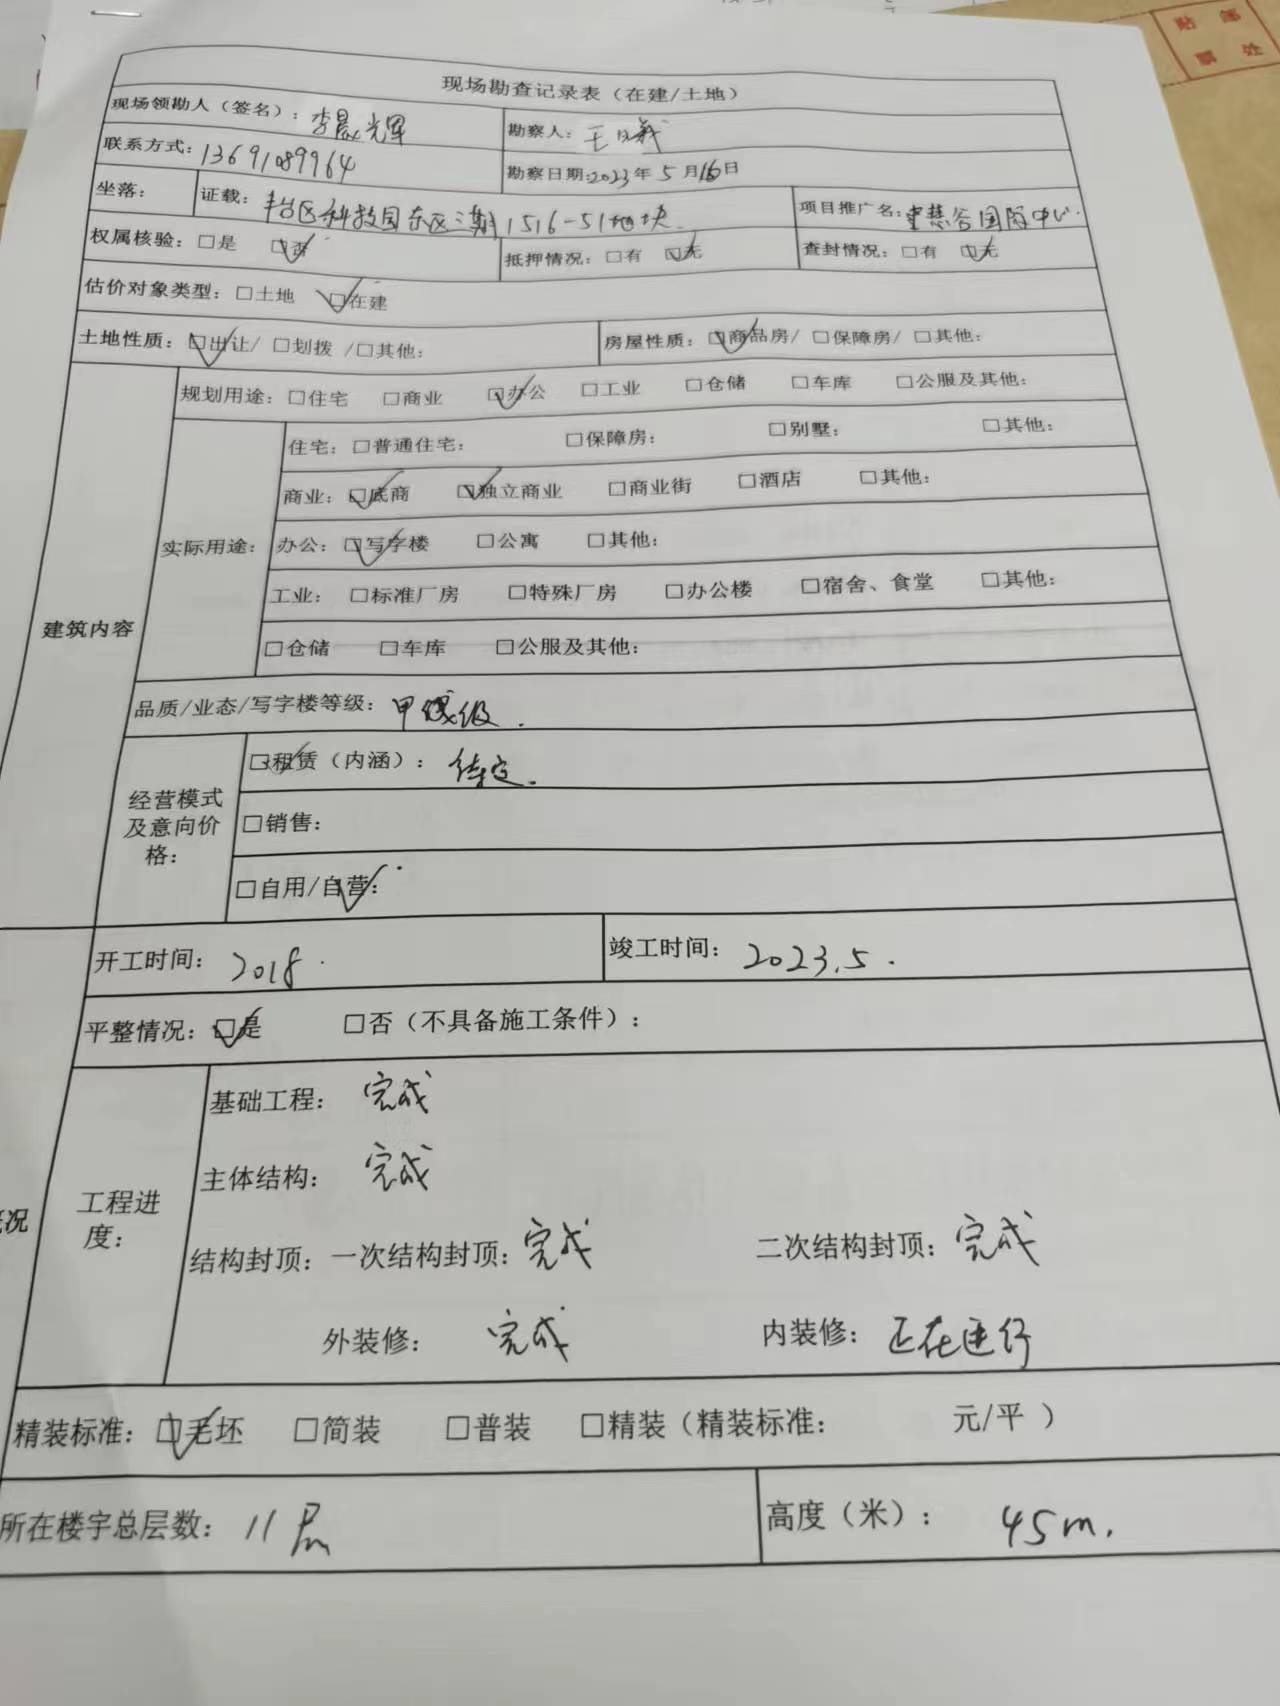 贴 邮
票 处
现场勘查记录表（在建/土地）
现场领勘人（签名）：李晨光军 勘察人：王
联系方式：13691089964 勘察日期:2023年5月16日
坐落： 证载：丰台区科技园东区三期1516-51地块 项目推广名：慧谷国际中心
权属核验：□是 ☑否 抵押情况：□有 ☑无 查封情况：□有 ☑无
估价对象类型：□土地 ☑在建
土地性质：☑出让/ □划拨 /□其他： 房屋性质：☑商品房/ □保障房/ □其他：
建筑内容
规划用途：□住宅 □商业 ☑办公 □工业 □仓储 □车库 □公服及其他：
实际用途：
住宅：□普通住宅： □保障房： □别墅： □其他：
商业：☑底商 ☑独立商业 □商业街 □酒店 □其他：
办公：☑写字楼 □公寓 □其他：
工业：□标准厂房 □特殊厂房 □办公楼 □宿舍、食堂 □其他：
□仓储 □车库 □公服及其他：
品质/业态/写字楼等级：甲级.
经营模式
及意向价
格：
☑租赁（内涵）：待定.
□销售：
☑自用/自营：
开工时间：2018. 竣工时间：2023.5.
平整情况：☑是 □否（不具备施工条件）：
况
工程进
度：
基础工程：完成
主体结构：完成
结构封顶：一次结构封顶：完成 二次结构封顶：完成
外装修：完成 内装修：正在进行
精装标准：☑毛坯 □简装 □普装 □精装（精装标准： 元/平 ）
所在楼宇总层数：11层 高度（米）：45m.